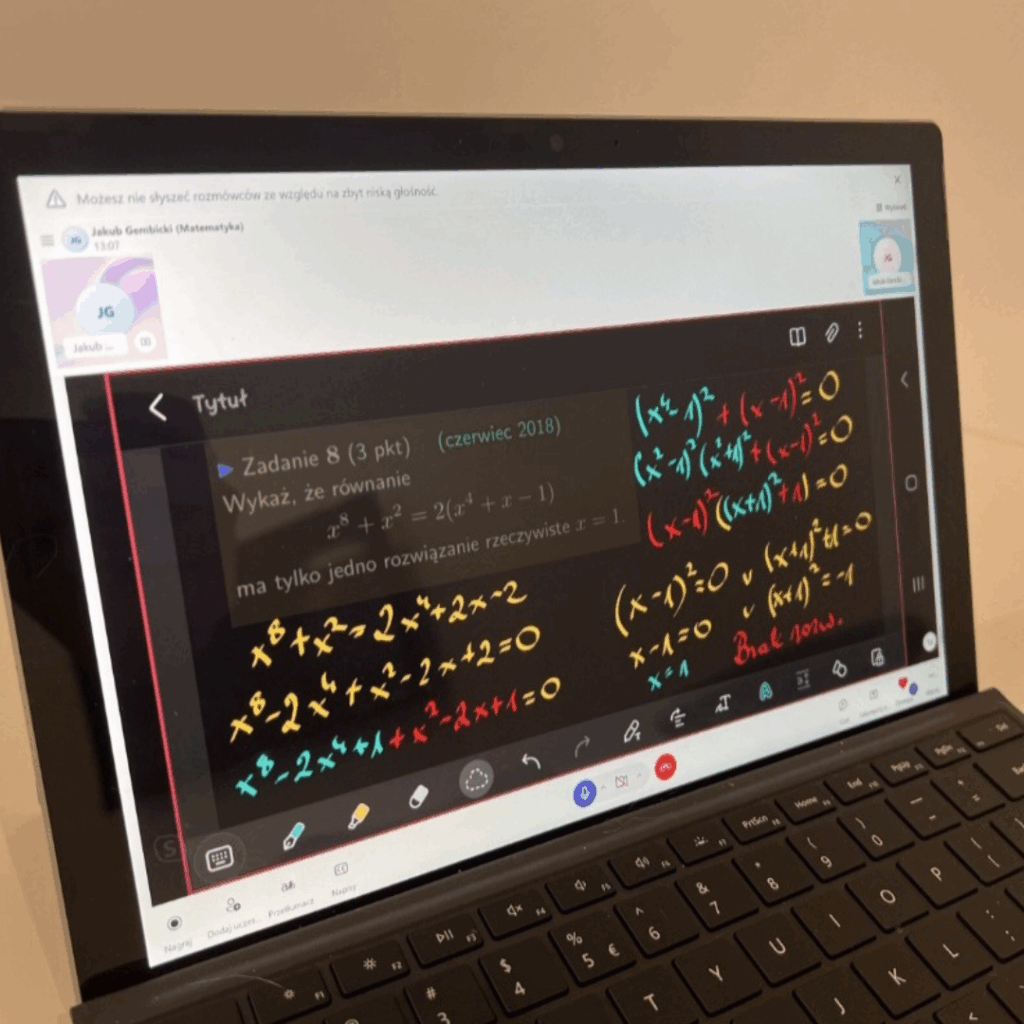 Możesz nie słyszeć rozmówców ze względu na zbyt niską głośność.
Jakub Gembicki (Matematyka)
13:07
JG
JG
Jakub ...
JG
Tytuł
Zadanie 8 (3 pkt) (czerwiec 2018)
Wykaż, że równanie
x⁸ + x² = 2(x⁴ + x − 1)
ma tylko jedno rozwiązanie rzeczywiste x = 1.
x⁸+x²=2x⁴+2x-2
x⁸-2x⁴+x²-2x+2=0
x⁸-2x⁴+1+x²-2x+1=0
(x⁴-1)²+(x-1)²=0
(x²-1)²(x²+1)²+(x-1)²=0
(x-1)²((x+1)²+1)=0
(x-1)²=0 v (x+1)²+1=0
x-1=0 v (x+1)²=-1
x=1 Brak rozw.
Nagraj
Dodaj uczes...
Przetłumacz
Napisy
F1
F2
F3
F4
F5
F6
F7
PrtScn F8
Home F9
End F10
PgUp F11
PgDn F12
Del
# 3
$ 4
% 5 €
^ 6
& 7
* 8
( 9
) 0
T Y U I O P
J K L